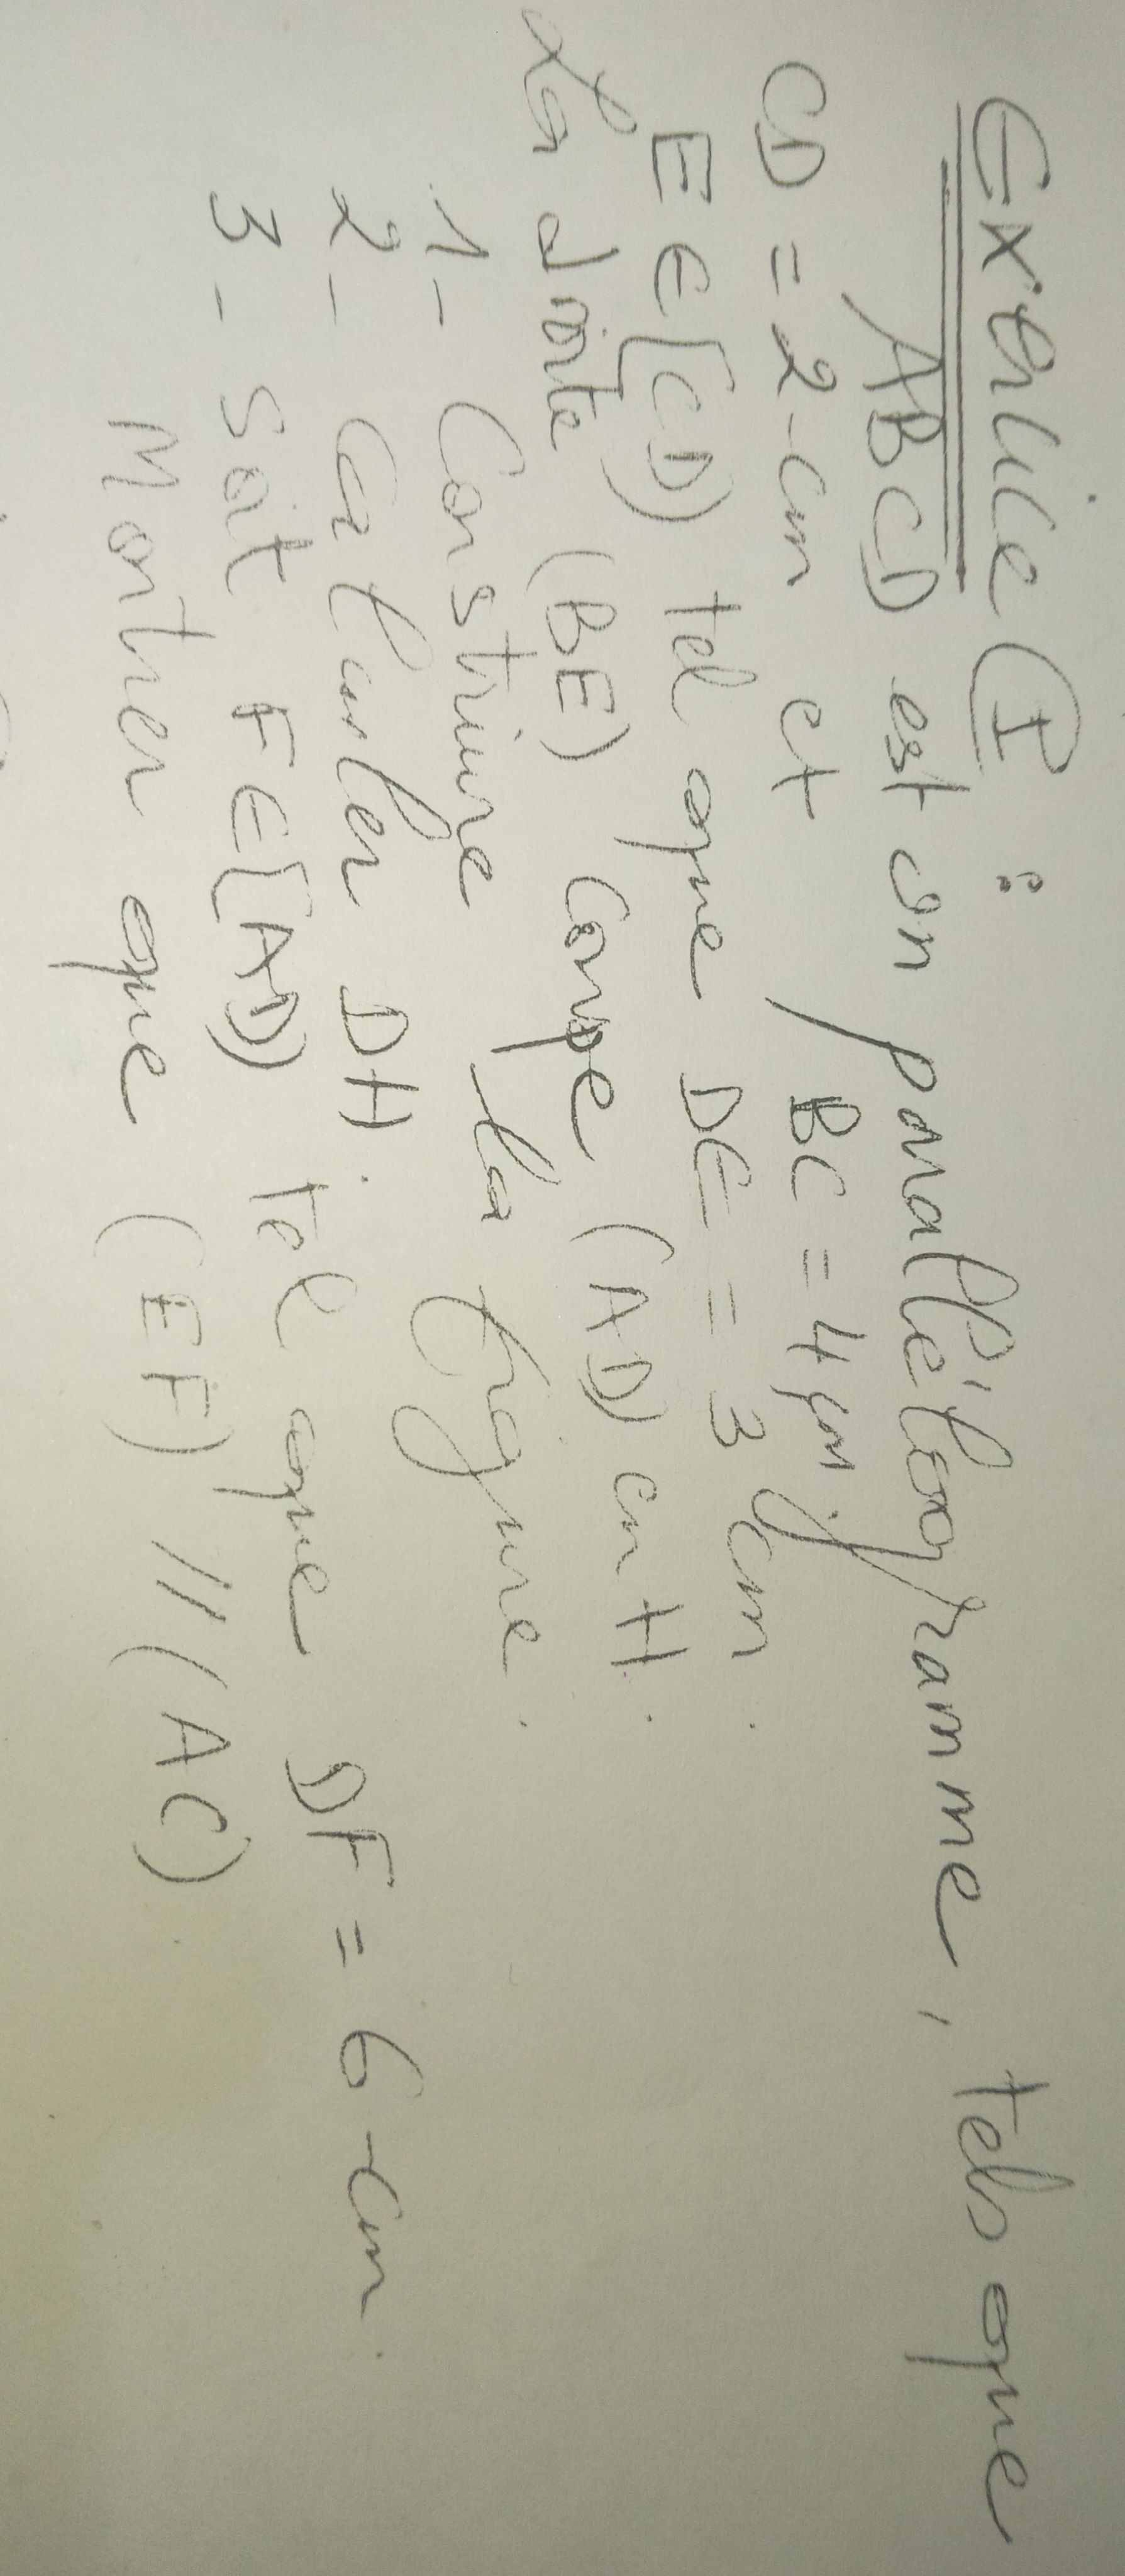 Exercice I :
ABCD est un parallélogramme, tels que
CD = 2 cm et BC = 4 cm
E ∈ [CD) tel que DE = 3 cm.
La droite (BE) coupe (AD) en H.
1- Construire la figure.
2- Calculer DH.
3- Soit F ∈ [AD) tel que DF = 6 cm.
Montrer que (EF) // (AC).